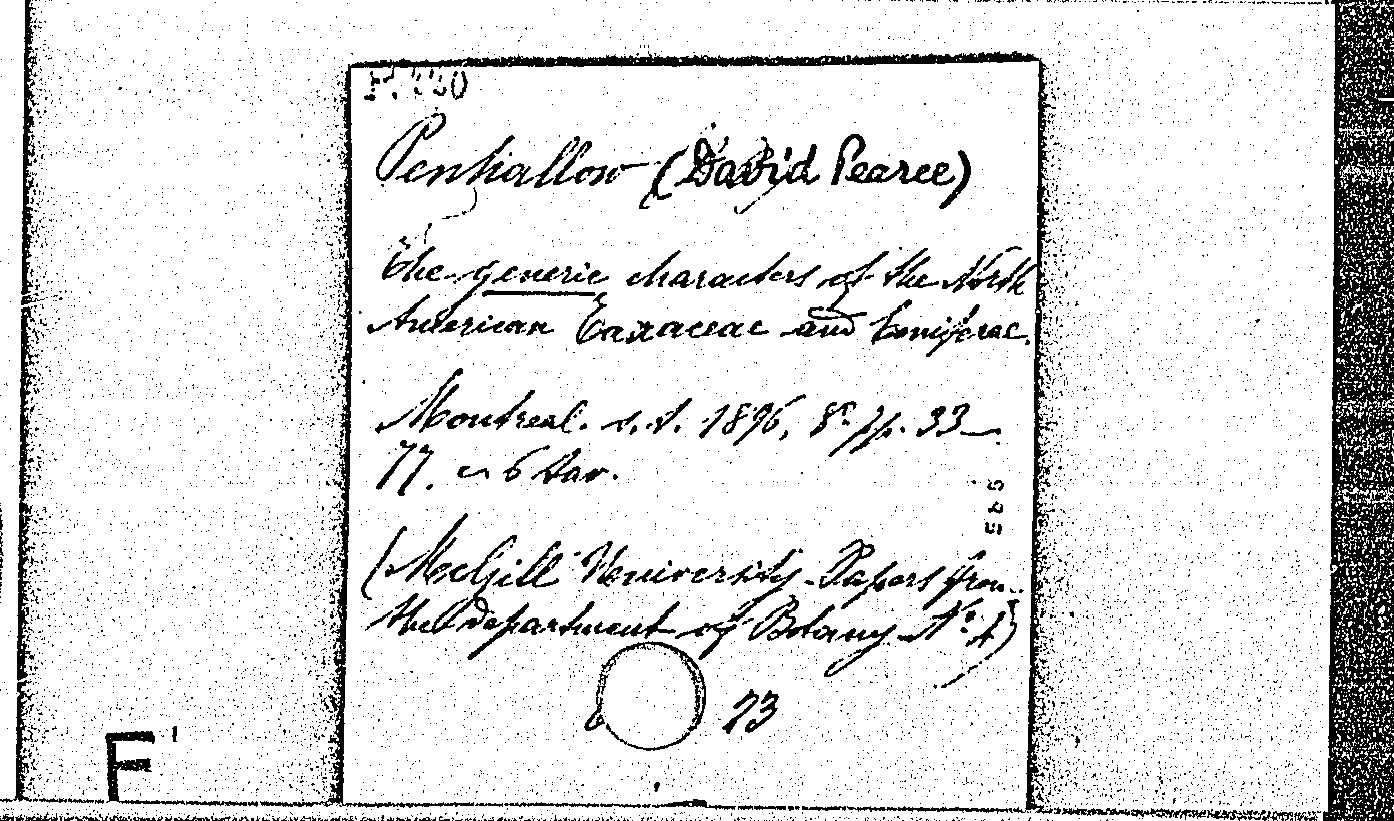 Penhallow (David Pearce)
The generic characters of the North
American Taxaceae and Coniferae.
Montreal. s. t. 1896, 8º pp. 33—
77. c 6 tav.
(MacGill University. Papers from
the department of Botany Nº 4)
73
F